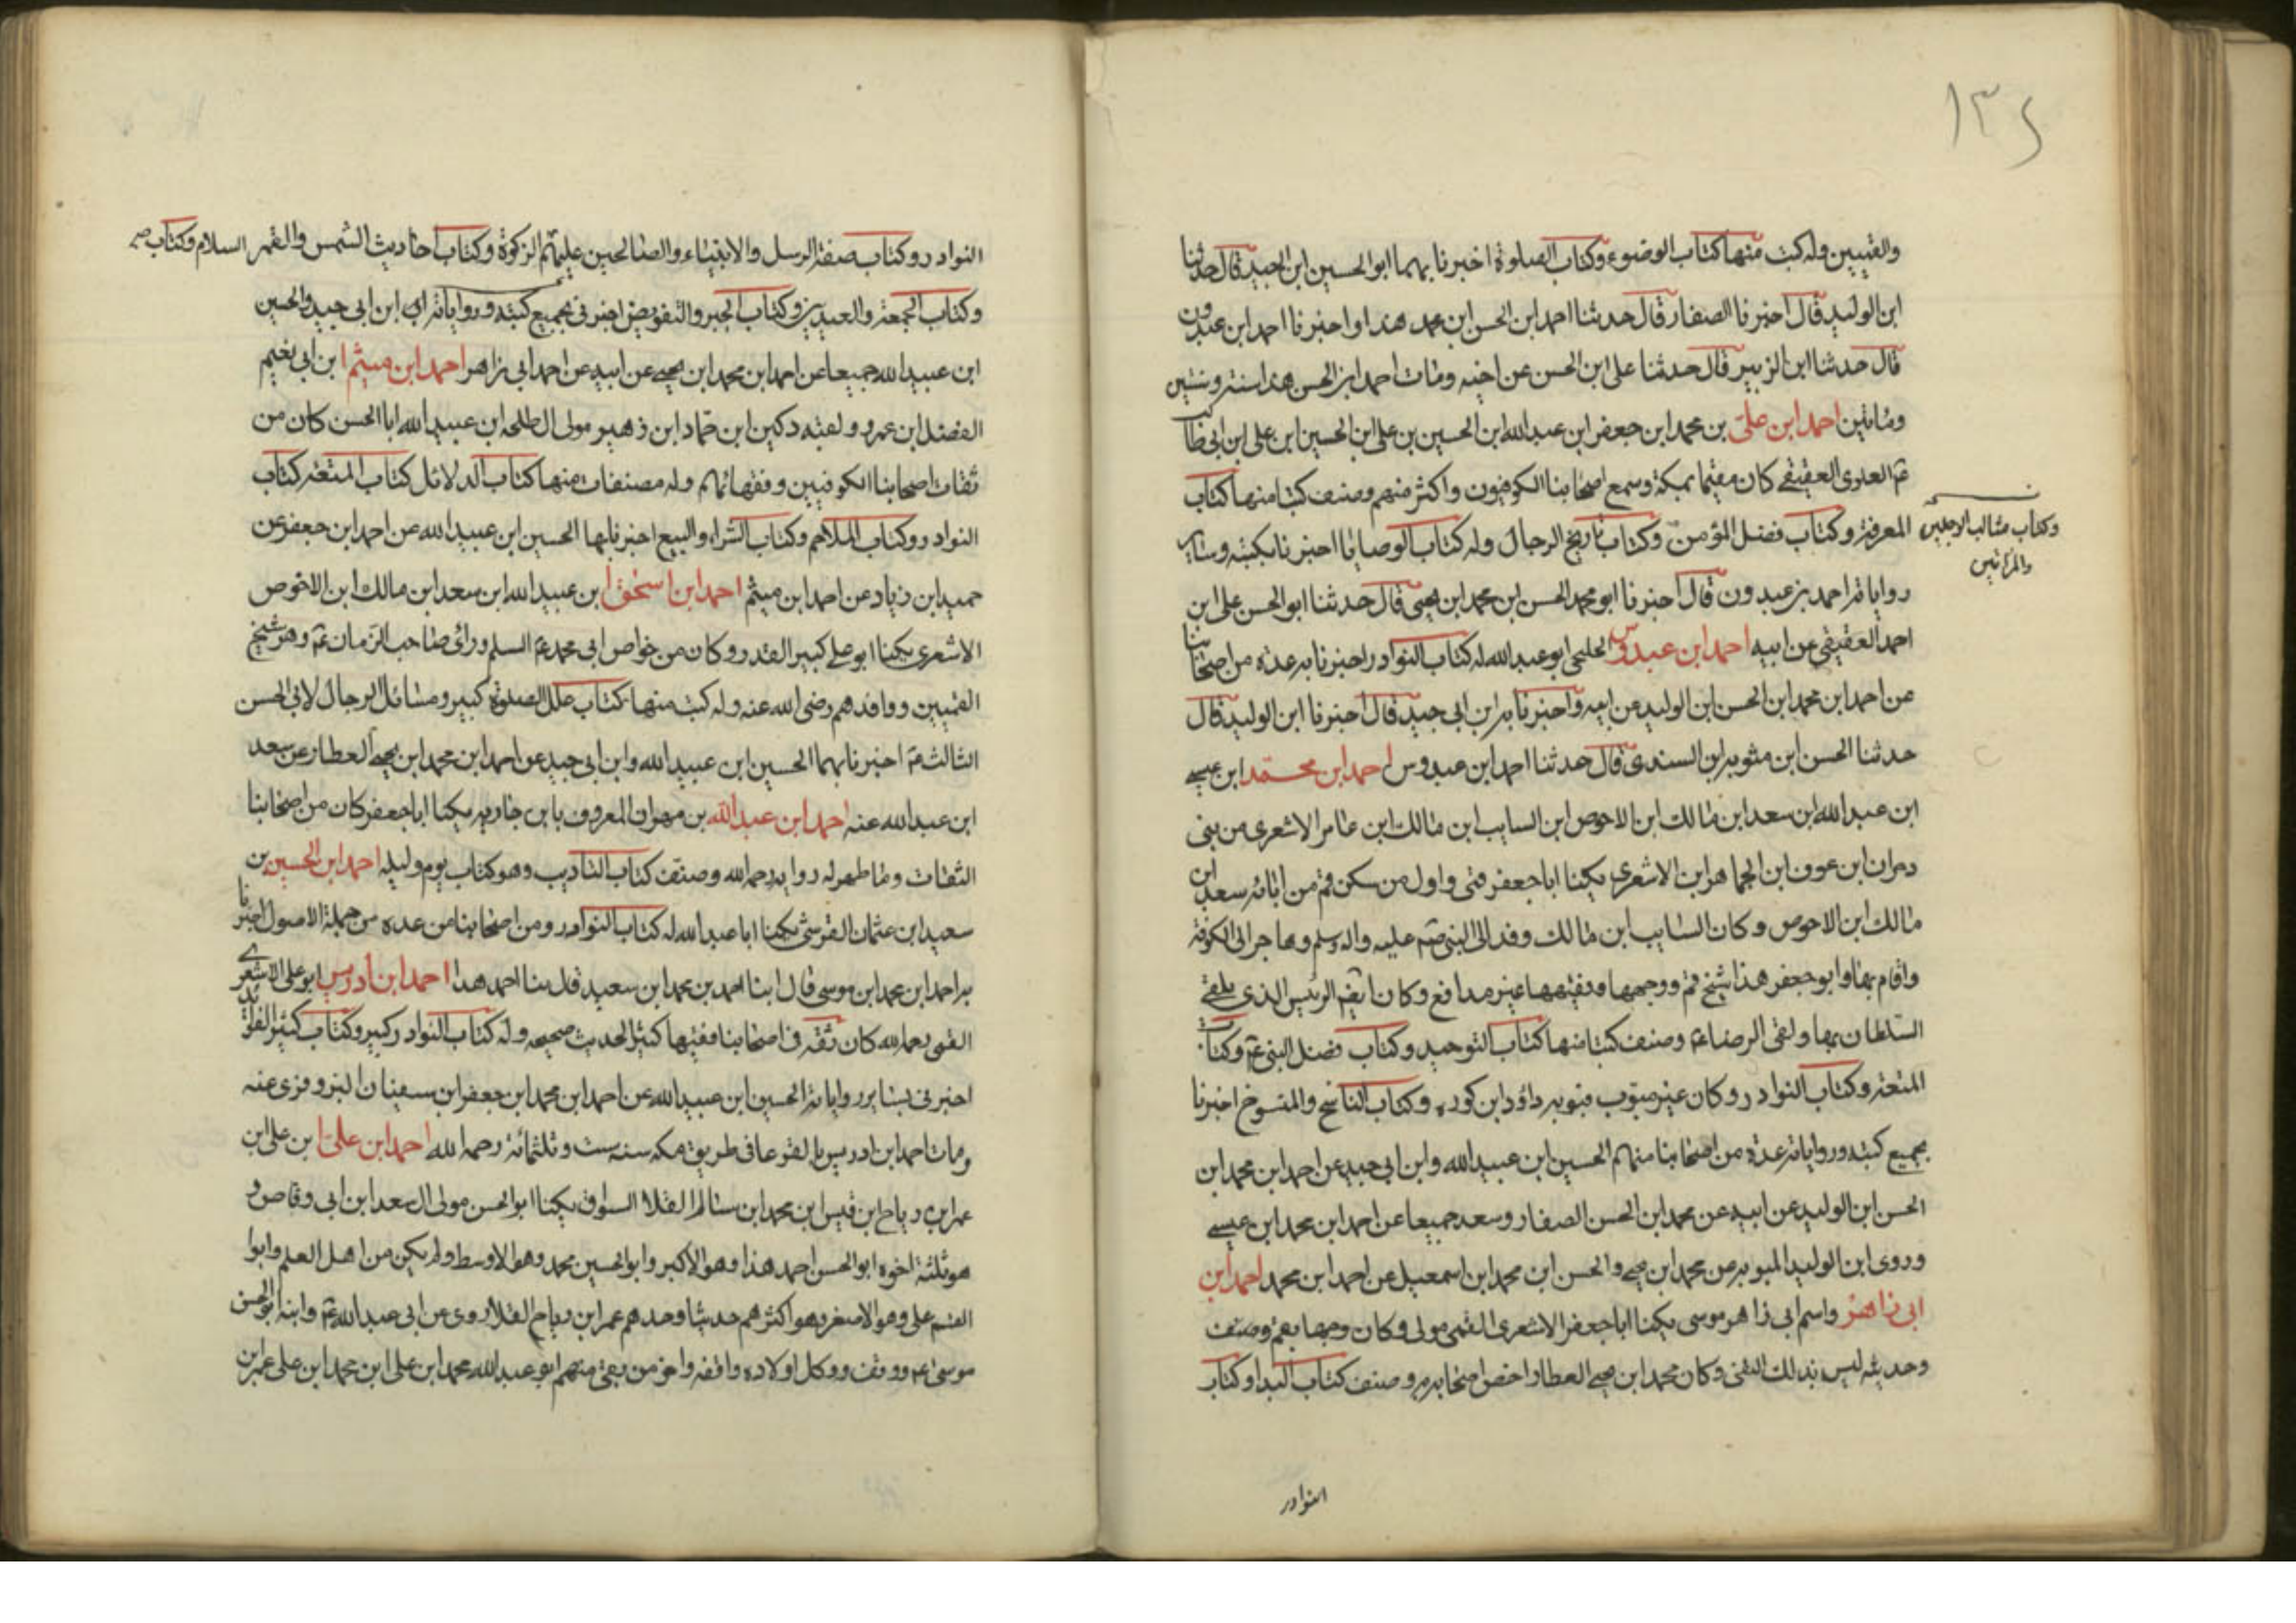 ١٣٤
والقميين وله كتب منها كتاب الوضوء وكتاب الصلوة اخبرنا بهما ابو الحسين ابن ابى جيد قال حدثنا
ابن الوليد قال اخبرنا الصفار قال حدثنا احمد ابن الحسن ابن محمد هذا واخبرنا احمد ابن عبدون
قال حدثنا ابن الزبير قال حدثنا على ابن الحسن عن اخيه ومات احمد ابن الحسن هذا سنة وستين
ومائتين احمد ابن على بن محمد ابن جعفر ابن عبد الله ابن الحسين بن على ابن الحسين ابن على ابن ابى طالب
عم العلوى العقيقى كان مقيما بمكة وسمع اصحابنا الكوفيون واكثر منهم وصنف كتبا منها كتاب
المعرفة وكتاب فضل المؤمن وكتاب تاريخ الرجال وله كتاب الوصايا اخبرنا بكتبه وساير
وكتاب مثالب الرجلين
والمراتين
رواياته احمد بن عبدون قال اخبرنا ابو محمد الحسن ابن محمد ابن يحيى قال حدثنا ابو الحسن على ابن
احمد العقيقى عن ابيه احمد ابن عبدوس الخلنجى ابو عبد الله له كتاب النوادر اخبرنا به عدة من اصحابنا
عن احمد ابن محمد ابن الحسن ابن الوليد عن ابيه واخبرنا به ابن ابى جيد قال اخبرنا ابن الوليد قال
حدثنا الحسن ابن متويه ابن السندى قال حدثنا احمد ابن عبدوس احمد ابن محمد ابن عيسى
ابن عبد الله ابن سعد ابن مالك ابن الاحوص ابن السايب ابن مالك ابن عامر الاشعرى من بنى
دمران ابن عوف ابن الجماهر ابن الاشعرى يكنا ابا جعفر قمى واول من سكن قم من ابائه سعد ابن
مالك ابن الاحوص وكان السايب ابن مالك وفد الى النبى صم عليه واله وسلم وهاجر الى الكوفة
واقام بها وابو جعفر هذا شيخ قم ووجهها وفقيهها غير مدافع وكان ايضم الرئيس الذى يلقى
السلطان بها ولقى الرضا عم وصنف كتبا منها كتاب التوحيد وكتاب فضل النبى عم وكتاب
المتعة وكتاب النوادر وكان غير مبوب فبوبه داود ابن كوره وكتاب الناسخ والمنسوخ اخبرنا
بجميع كتبه ورواياته عدة من اصحابنا منهم الحسين ابن عبيد الله وابن ابى جيد عن احمد ابن محمد ابن
الحسن ابن الوليد عن ابيه عن محمد ابن الحسن الصفار وسعد جميعا عن احمد ابن محمد ابن عيسى
وروى ابن الوليد المبوبه عن محمد ابن يحيى والحسن ابن محمد ابن اسمعيل عن احمد ابن محمد احمد ابن
ابى زاهر واسم ابى زاهر موسى يكنا ابا جعفر الاشعرى القمى مولى وكان وجها بقم وصنف
وحديثه ليس بذلك النقى وكان محمد ابن يحيى العطار اخص اصحابه وصنف كتاب البدا وكتاب
النوادر
النوادر وكتاب صفة الرسل والانبياء والصالحين عليهم الزكوة وكتاب احاديث الشمس والقمر السلام وكتاب
وكتاب الجمعة والعيدين وكتاب الجبر والتفويض اخبرنى بجميع كتبه ورواياته ابن ابى جيد والحسين
ابن عبيد الله جميعا عن احمد ابن محمد ابن يحيى عن ابيه عن احمد ابى زاهر احمد ابن ميثم ابن ابى نعيم
الفضل ابن عمرو ولقبه دكين ابن حماد ابن زهير مولى ال طلحه ابن عبيد الله ابا الحسن كان من
ثقات اصحابنا الكوفيين وفقهائهم وله مصنفات منها كتاب الدلائل كتاب المتعه كتاب
النوادر وكتاب الملاحم وكتاب الشراء والبيع اخبرنا بها الحسين ابن عبيد الله عن احمد ابن جعفر عن
حميد ابن زياد عن احمد ابن ميثم احمد ابن اسحق ابن عبيد الله ابن سعد ابن مالك ابن الاحوص
الاشعرى يكنا ابو على كبير القدر وكان من خواص ابى محمد عم السلم وراى صاحب الزمان عم وهو شيخ
القميين ووافدهم رضى الله عنه وله كتب منها كتاب علل الصلوة كبير ومسائل الرجال لابى الحسن
الثالث عم اخبرنا بهما الحسين ابن عبيد الله وابن ابى جيد عن احمد ابن محمد ابن يحيى العطار عن سعد
ابن عبد الله عنه احمد ابن عبد الله بن مهران المعروف بابن خانبه يكنا ابا جعفر كان من اصحابنا
الثقات وما ظهر له روايه رحمه الله وصنف كتاب التاديب وهو كتاب يوم وليله احمد ابن الحسين بن
سعيد ابن عثمان القرشى يكنا ابا عبد الله له كتاب النوادر ومن اصحابنا من عده من جملة الاصول اخبرنا
به احمد ابن محمد ابن موسى قال ابنا احمد بن محمد ابن سعيد قال بنا احمد هذا احمد ابن ادريس ابو على الاشعرى
القمى رحمه الله كان ثقه فى اصحابنا فقيها كثير الحديث صحيحه وله كتاب النوادر كبير وكتاب كثير الفوائد
اخبرنى بساير رواياته الحسين ابن عبيد الله عن احمد ابن محمد ابن جعفر ابن سفيان البزوفرى عنه
ومات احمد ابن ادريس بالقرعا فى طريق مكه سنه ست وثلثمائه رحمه الله احمد ابن على بن على ابن
عمر ابن رياح ابن قيس ابن محمد ابن سالم القلا السواق يكنا ابو الحسن مولى ال سعد ابن ابى وقاص و
هو ثلثة اخوه ابو الحسن احمد هذا وهو الاكبر وابو الحسين محمد وهو الاوسط ولم يكن من اهل العلم وابوا
القسم على وهو الاصغر وهو اكثرهم حديثا وجدهم عمر ابن رياح القلا روى عن ابى عبد الله عم وابنه ابو الحسن
موسى عم ووقف ووكل اولاده واقفه واخر من بقى منهم ابو عبد الله محمد ابن على ابن محمد ابن على عمر ابن